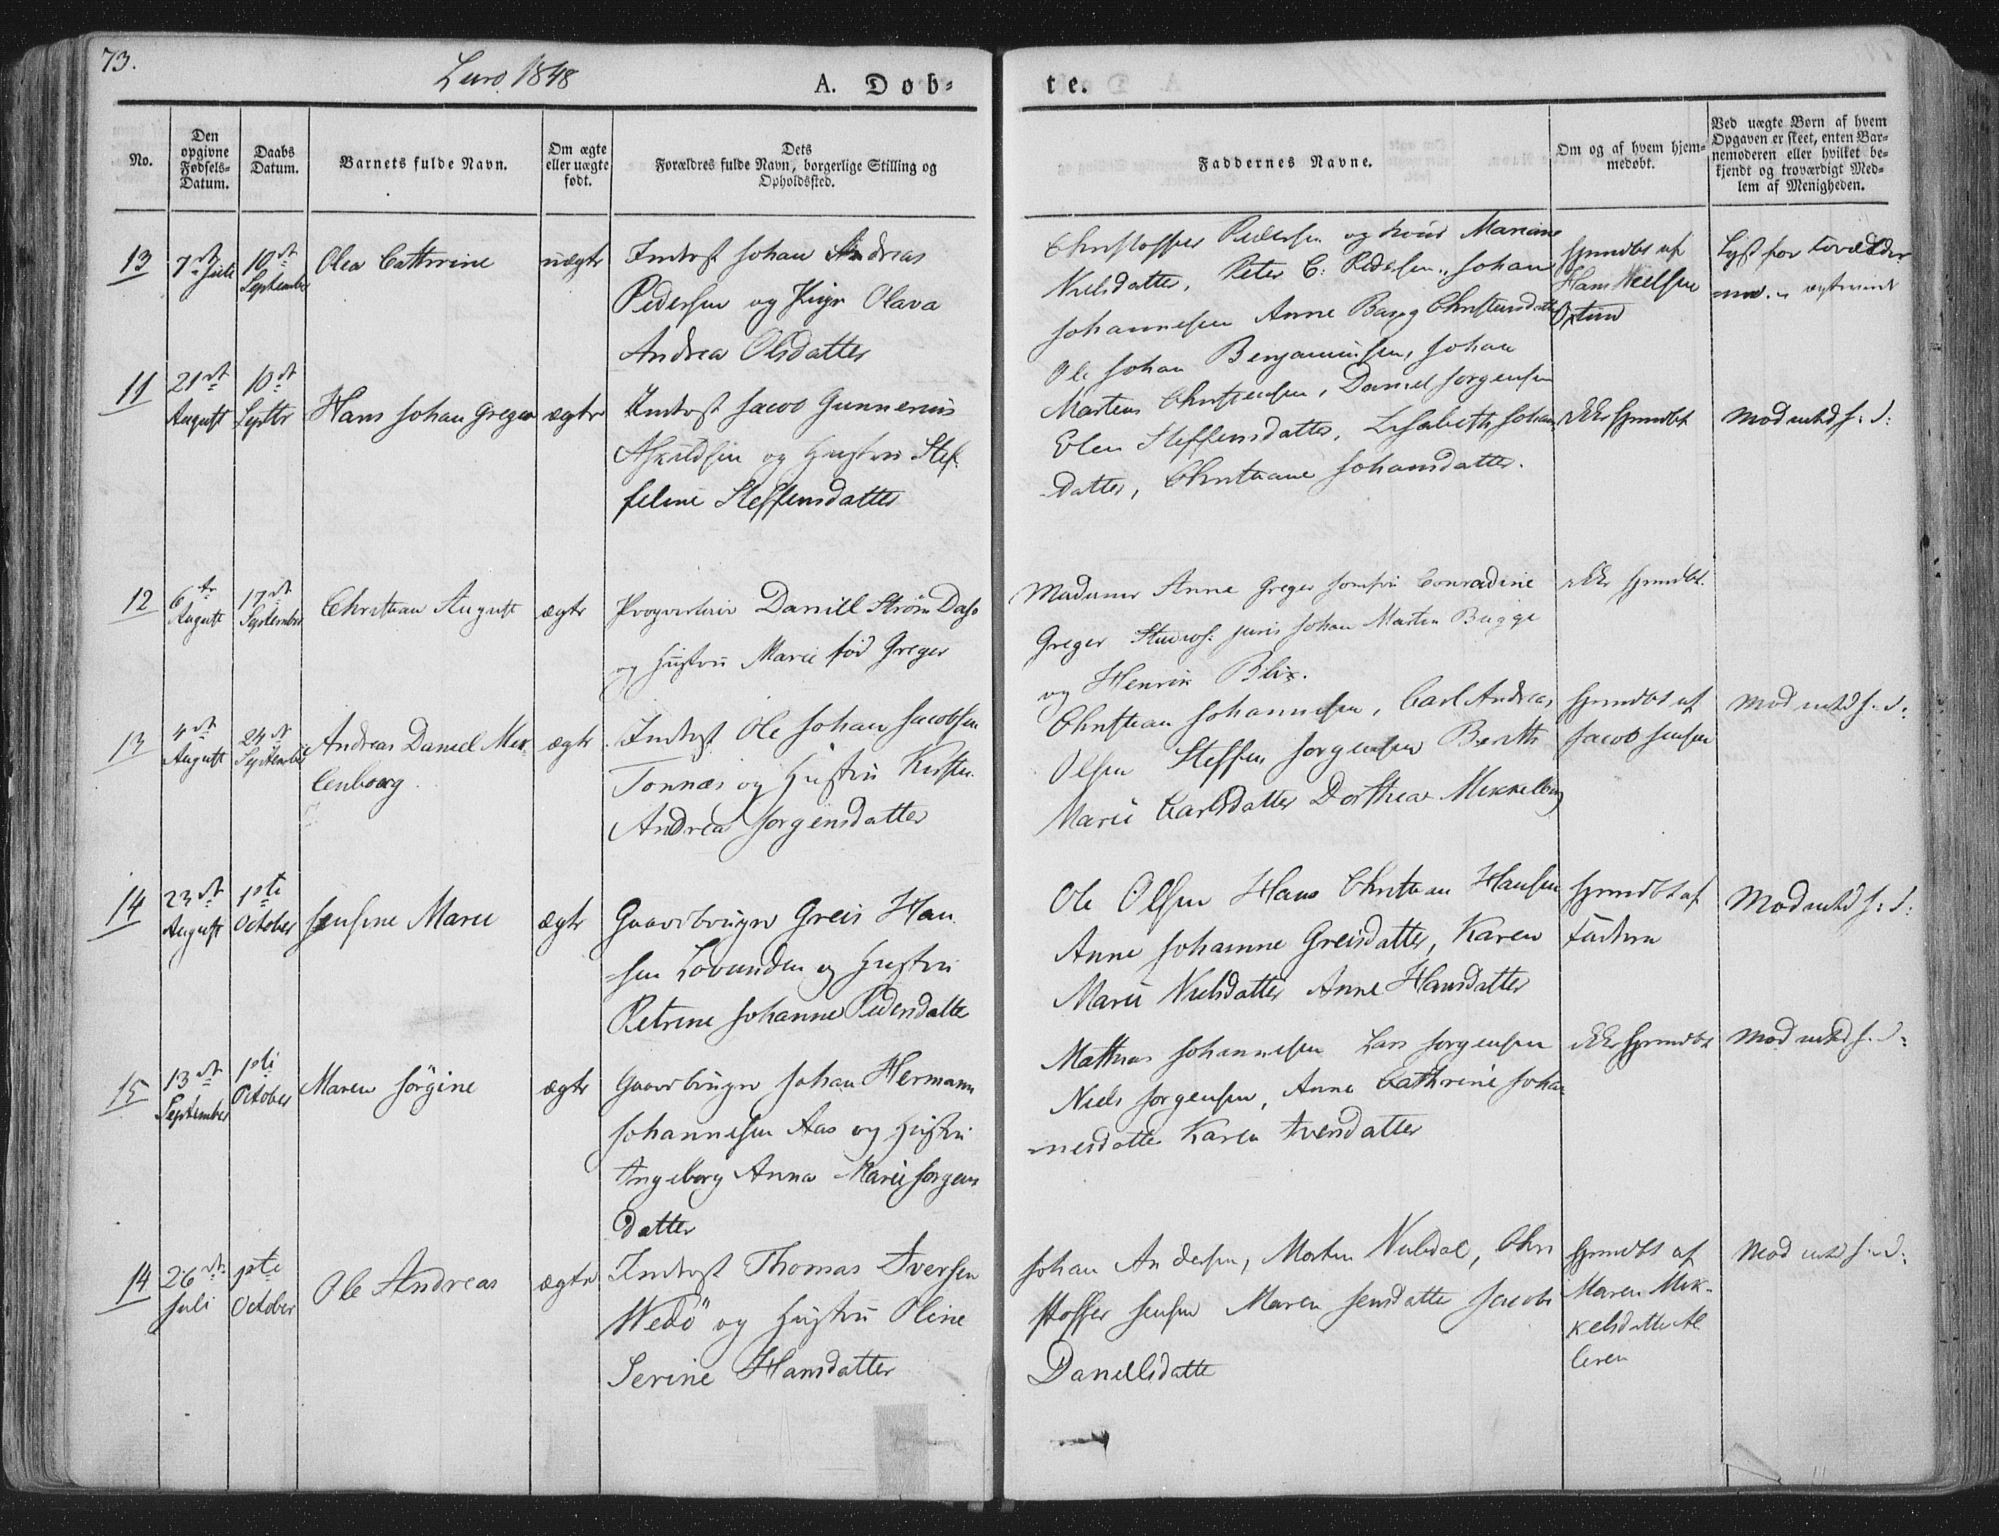 73.
Lurø 1848
A. Døb-
te.
No.
Den opgivne Fødsels-Datum.
Daabs Datum.
Barnets fulde Navn.
Om ægte eller uægte født.
Dets Forældres fulde Navn, borgerlige Stilling og Opholdssted.
Faddernes Navne.
Om og af hvem hjem-medøbt.
Ved uægte Børn af hvem Opgaven er skeet, enten Bar-nemoderen eller hvilket be-kjendt og troværdigt Med-lem af Menigheden.
13
7de Juli
10de September
Olea Cathrine
uægte
Indrst Johan Andreas
Pedersen og Pige Olava
Andrea Olsdatter
Christoffer Pedersen og Marianne
Nielsdatter, Peter C: Pedersen, Johan
Johannesen Anne Christensdatter
Hjemdøbt af
Hans Neelsen
11
21de August
10de Septbr
Hans Johan Greger
ægte
Indrst Jacob Gunnerius
Askildsen og Hustru Stef-
feline Steffensdatter
Ole Johan Benjaminsen, Johan
Martens Christensen, Daniel Jørgensen
Elen Steffensdatter, Lisabeth Johans
datter, Christiane Johansdatter.
ikke hjemdøbt
Modentd s: S:
12
6te August
17de September
Christian August
ægte
Daniel Strøm
og Hustru Marie fød Greger
Madame Anne Greger Jomfru Conradine
Greger Studios: juris Johan Martin Bugge
og Henrik Blix.
ikke hjemdøbt.
13
4de August
24de September
Andreas Daniel Mek-
lenborg
ægte
Indrst Ole Johan Jacobsen
Tonnæs og Hustru Kirsten
Andrea Jørgensdatter
Christian Johannesen, Carl Andreas
Olsen Steffen Jørgensen Berith
Marie Carlsdatter Dorthea Mekkelborg
Hjemdøbt af
Jacob Jensen
Modentd s: S:
14
23de August
1ste October
Jensine Marie
ægte
Gaardbruger Greis Han
sen Lovunden og Hustru
Petrine Johanne Pedersdatte
Ole Olsen Hans Christian Hansen
Anne Johanne Greisdatter, Karen
Marie Nielsdatter Anne Hansdatter
Hjemdøbt af
Faderen
Modentd s: S:
15
13de September
1ste October
Maren Jörgine
ægte
Gaardbruger Johan Hermann
Johannesen Aas og Hustru
Ingeborg Anna Marie Jørgens
datter
Mathias Johannesen Lars Jørgensen
Niels Jørgensen, Anne Cathrine Johan
nesdatter Karen Ivensdatter
ikke hjemdøbt
Modentd s: S:
14
26de Juli
1ste October
Ole Andreas
ægte
Indrst Thomas Iversen
Wedö og Hustru Oline
Serine Hansdatter
Johan Andersen, Morten, Chri
stoffer Jensen Maren Jensdatte Jacobe
Daniellsdatte
Hjemdøbt af
Maren Mik-
kelsdatte Al
leren
Modentd s: S: